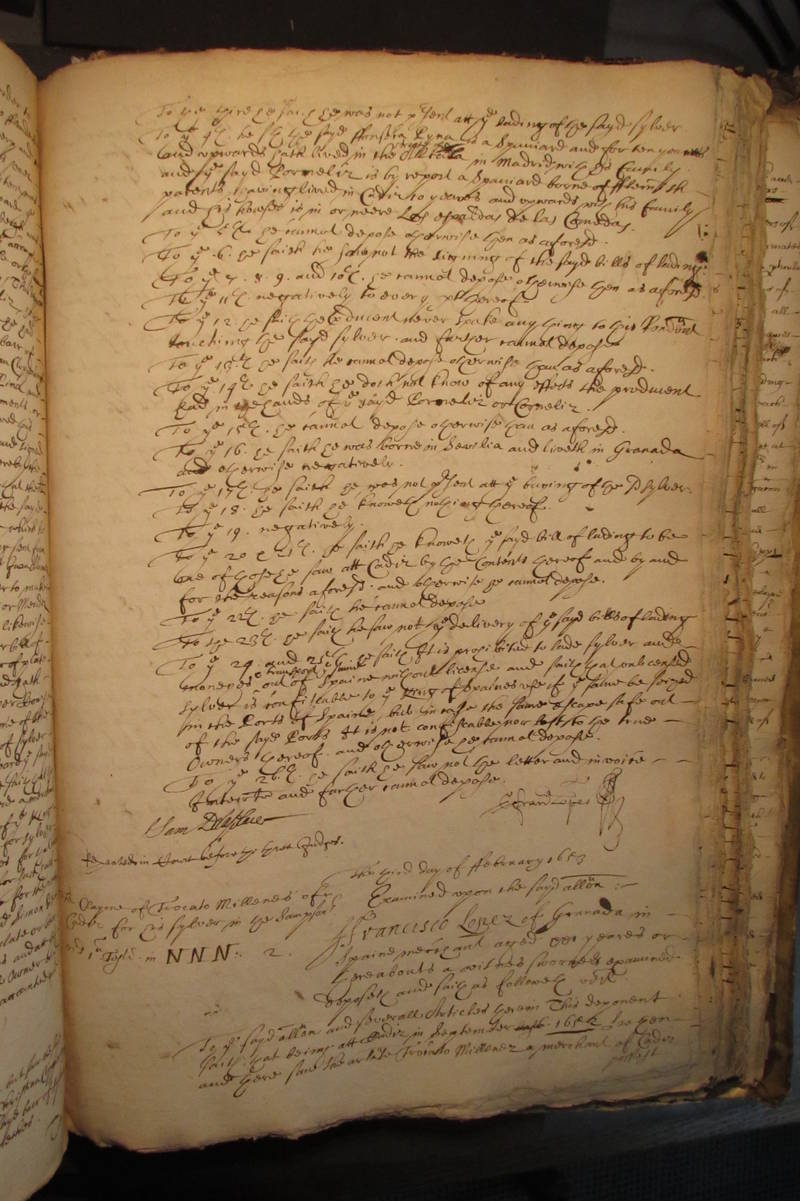 To the third he saith he was not present att the lading of the sayd sylver
To the 4th he saith the sayd ffonseca Pyna is a Spaniard and for ten yeares
and upwards hath lived in the in Madrid with his family
and the sayd Cornelix is by report a Spaniard borne of fflemish
parents having lived in Cadiz 10 yeares and upwards with his family
and his howse is in or neere Los espaldas de las Comedas.
To the 5th he cannot depose otherwise then as aforesd.
To the .6. he saith he saw not the signing of the sayd bills of lading.
To the 7. 8. 9. and 10th. he cannot depose otherwise then as aforesd.
To the 11th. negatively to every pt thereof.
To the 12. he saith the producent never spake any thing to this Rendent
touching the sayd sylver. and further cannot depose
To the 13th he saith he cannot depose otherwise than as aforesd.
To the 14th he saith he doth not know of any effects the producent
had in the hands of the sayd Cornelix or Cornelix.
To the 15th. he cannot depose otherwise than as aforesd.
To the 16. he saith he was borne in Sevilia and liveth in Granada
and otherwise negatively.
To the 17th he saith he was not present att the buying of the sd sylver.
To the 18. he saith he knoweth nothing thereof.
To the 19. negatively.
To the 20 & 21th. he saith he knoweth the sayd bill of lading to be
one of those he saw att Cadiz by the Contents thereof and by and
for the reasons aforesd. and otherwise he cannot depose.
To the 22th. he saith he cannot depose
To the 23th. he saith he saw not the delivery of the sayd bills of lading
To the 24. and 25th he saith It is prohibited to lade sylver and
moneyes & transport the same out of Spaine without license and saith that unlicensed
sylver is confiscable to the King of Spaines use if the same be seized
in the Ports of Spaine, but in case the same escape safe out
of the sayd Ports It is not confiscable nor lost to the true
Owners thereof. and otherwise he cannot depose.
To the 26th he saith he saw not the letter and invoice
Interrte and further cannot depose.
Repeated in Court before the three Judges.
The third day of ffebruary 1653
Clayme of Trocato Millenes of
Cadiz for his sylver in the Sampson
in NNN. 2.
Examined upon the sayd allon :-
Francisco Lopez of Granada in
Spaine merchant aged yeares or
thereabouts a witnes sworne examined
deposeth and saith as followeth vizt
To the sayd allon and severall Articles therein This deponent
saith that being att Cadiz in September 1652 hee then
and there saw the arlate Trocato Millenez a merchant of Cadiz